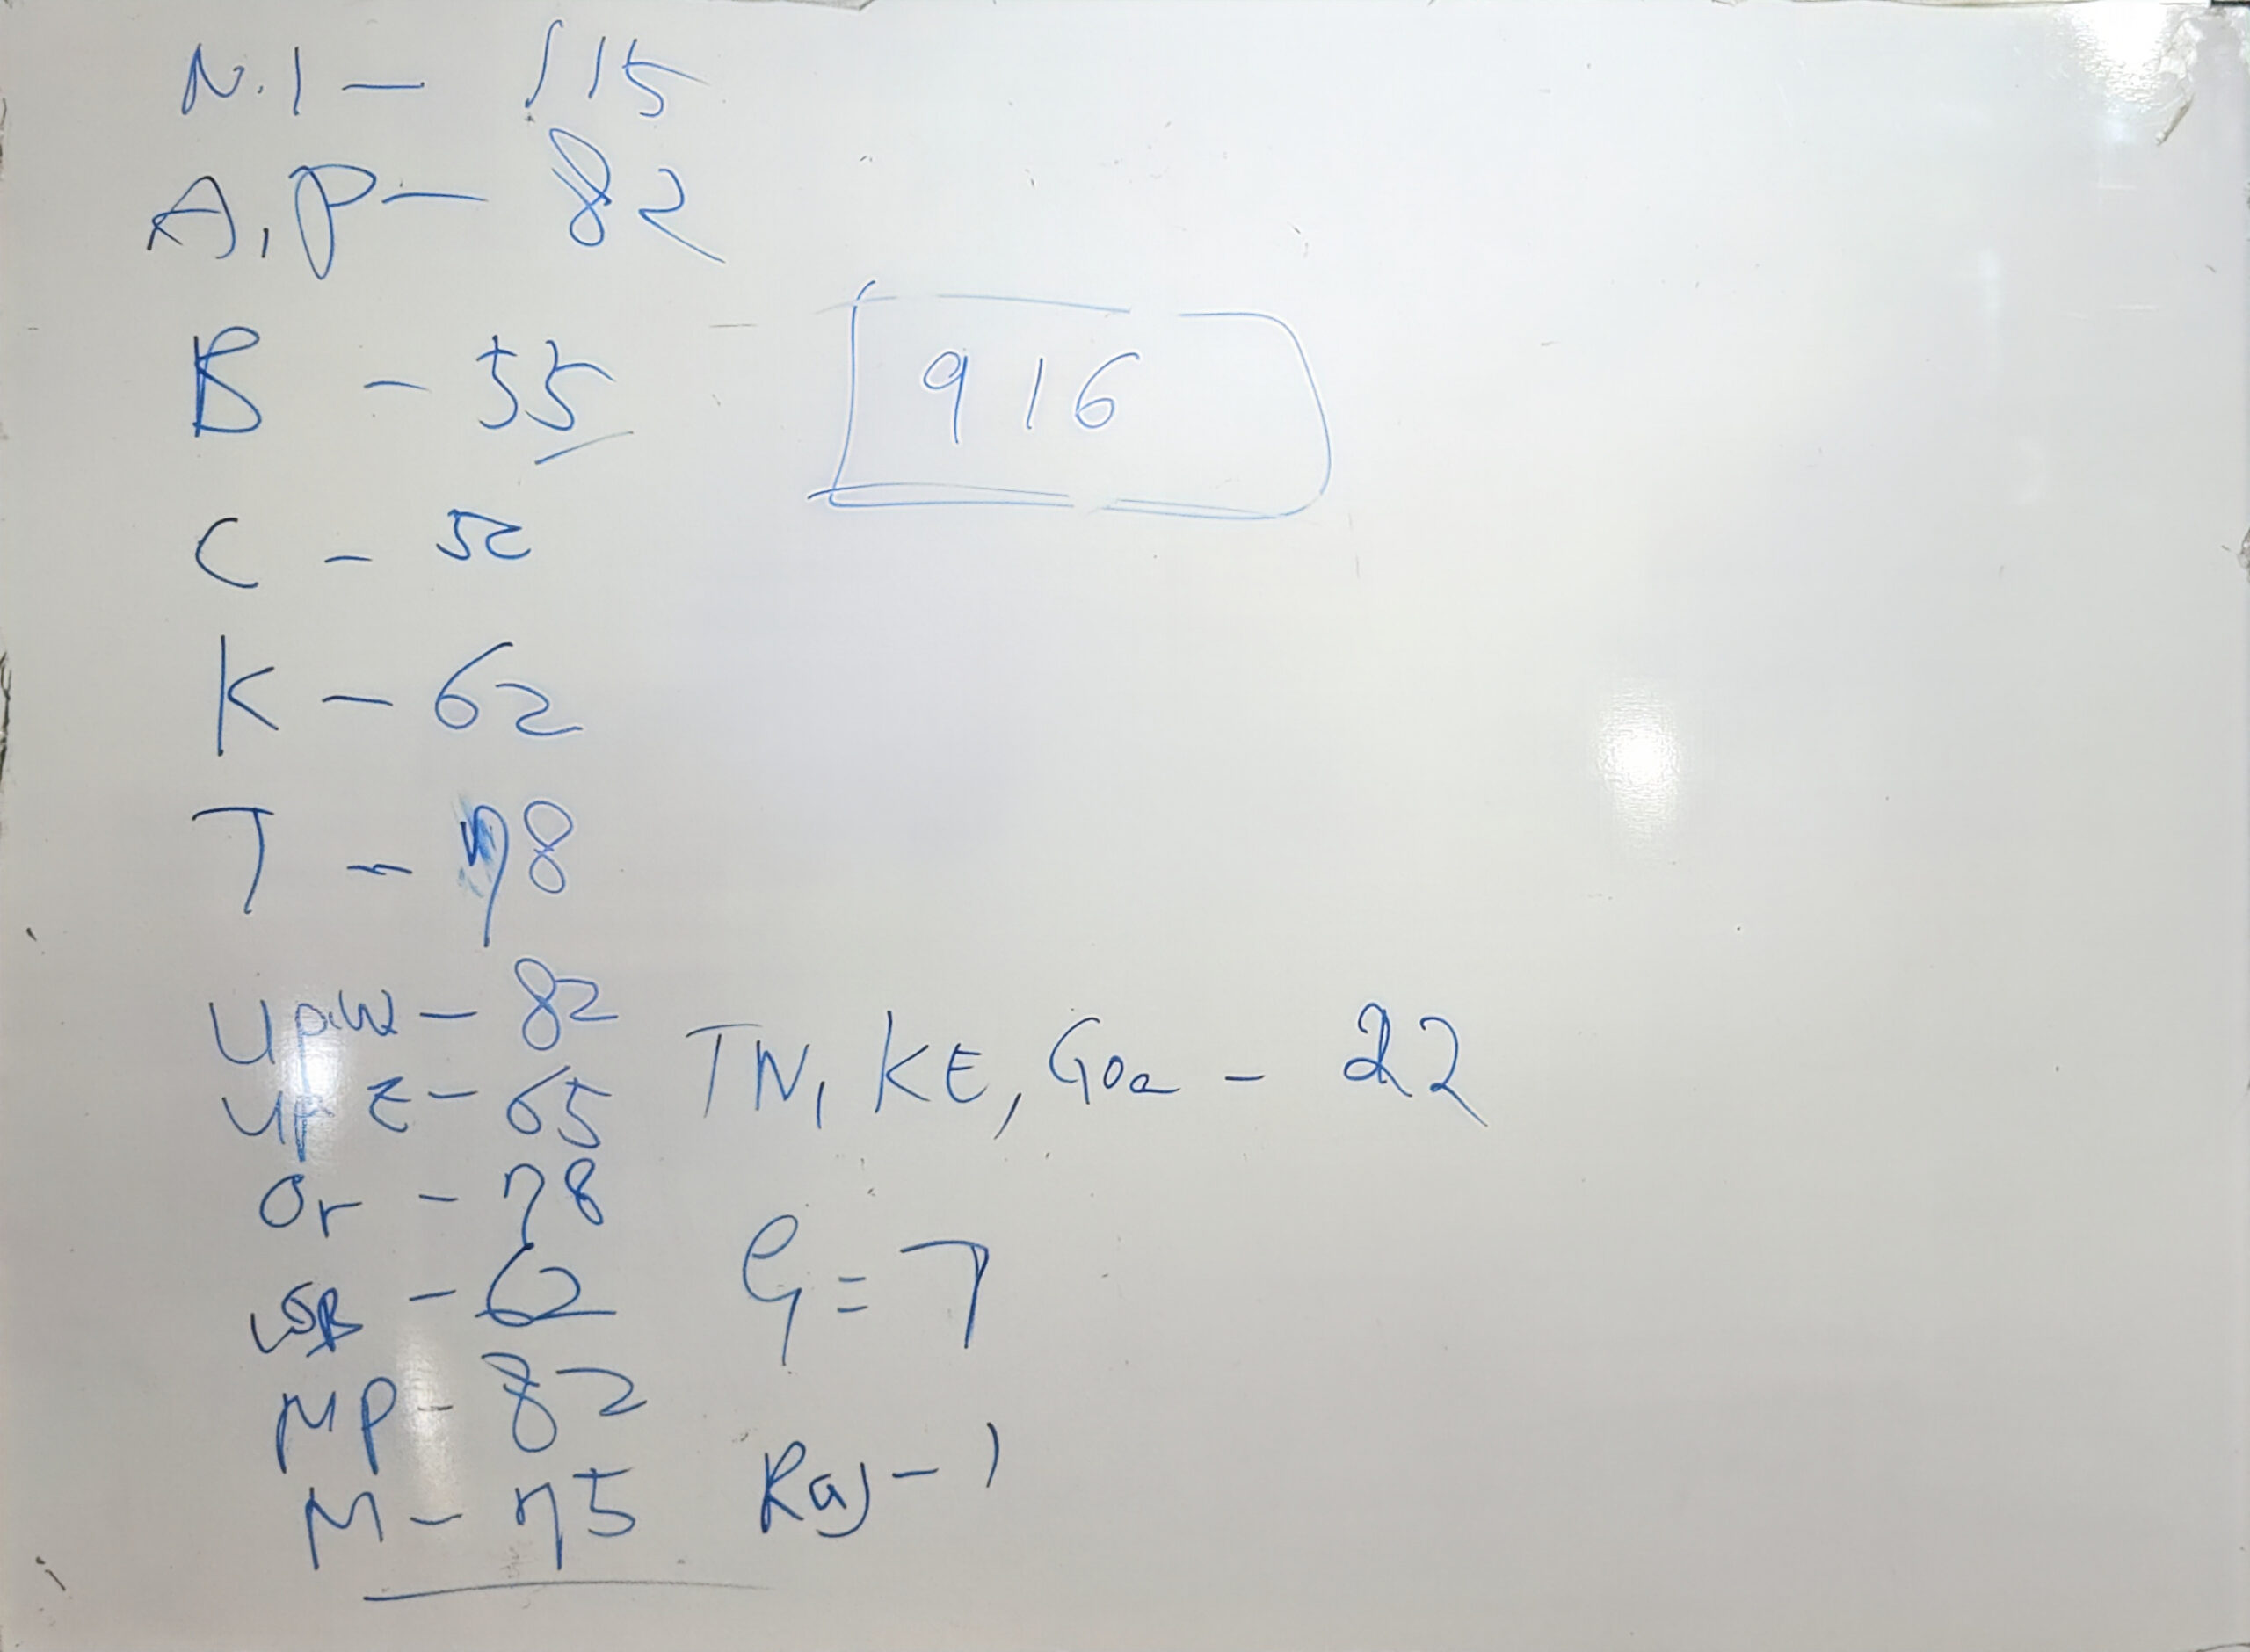 N.I - 115
A.P - 82
B - 55
916
C - 50
K - 62
T - 78
UP.W - 82
UP E - 65
TN, KE, Goa - 22
Or - 78
WB - 62
G = 7
MP - 82
M - 75
Raj - 1